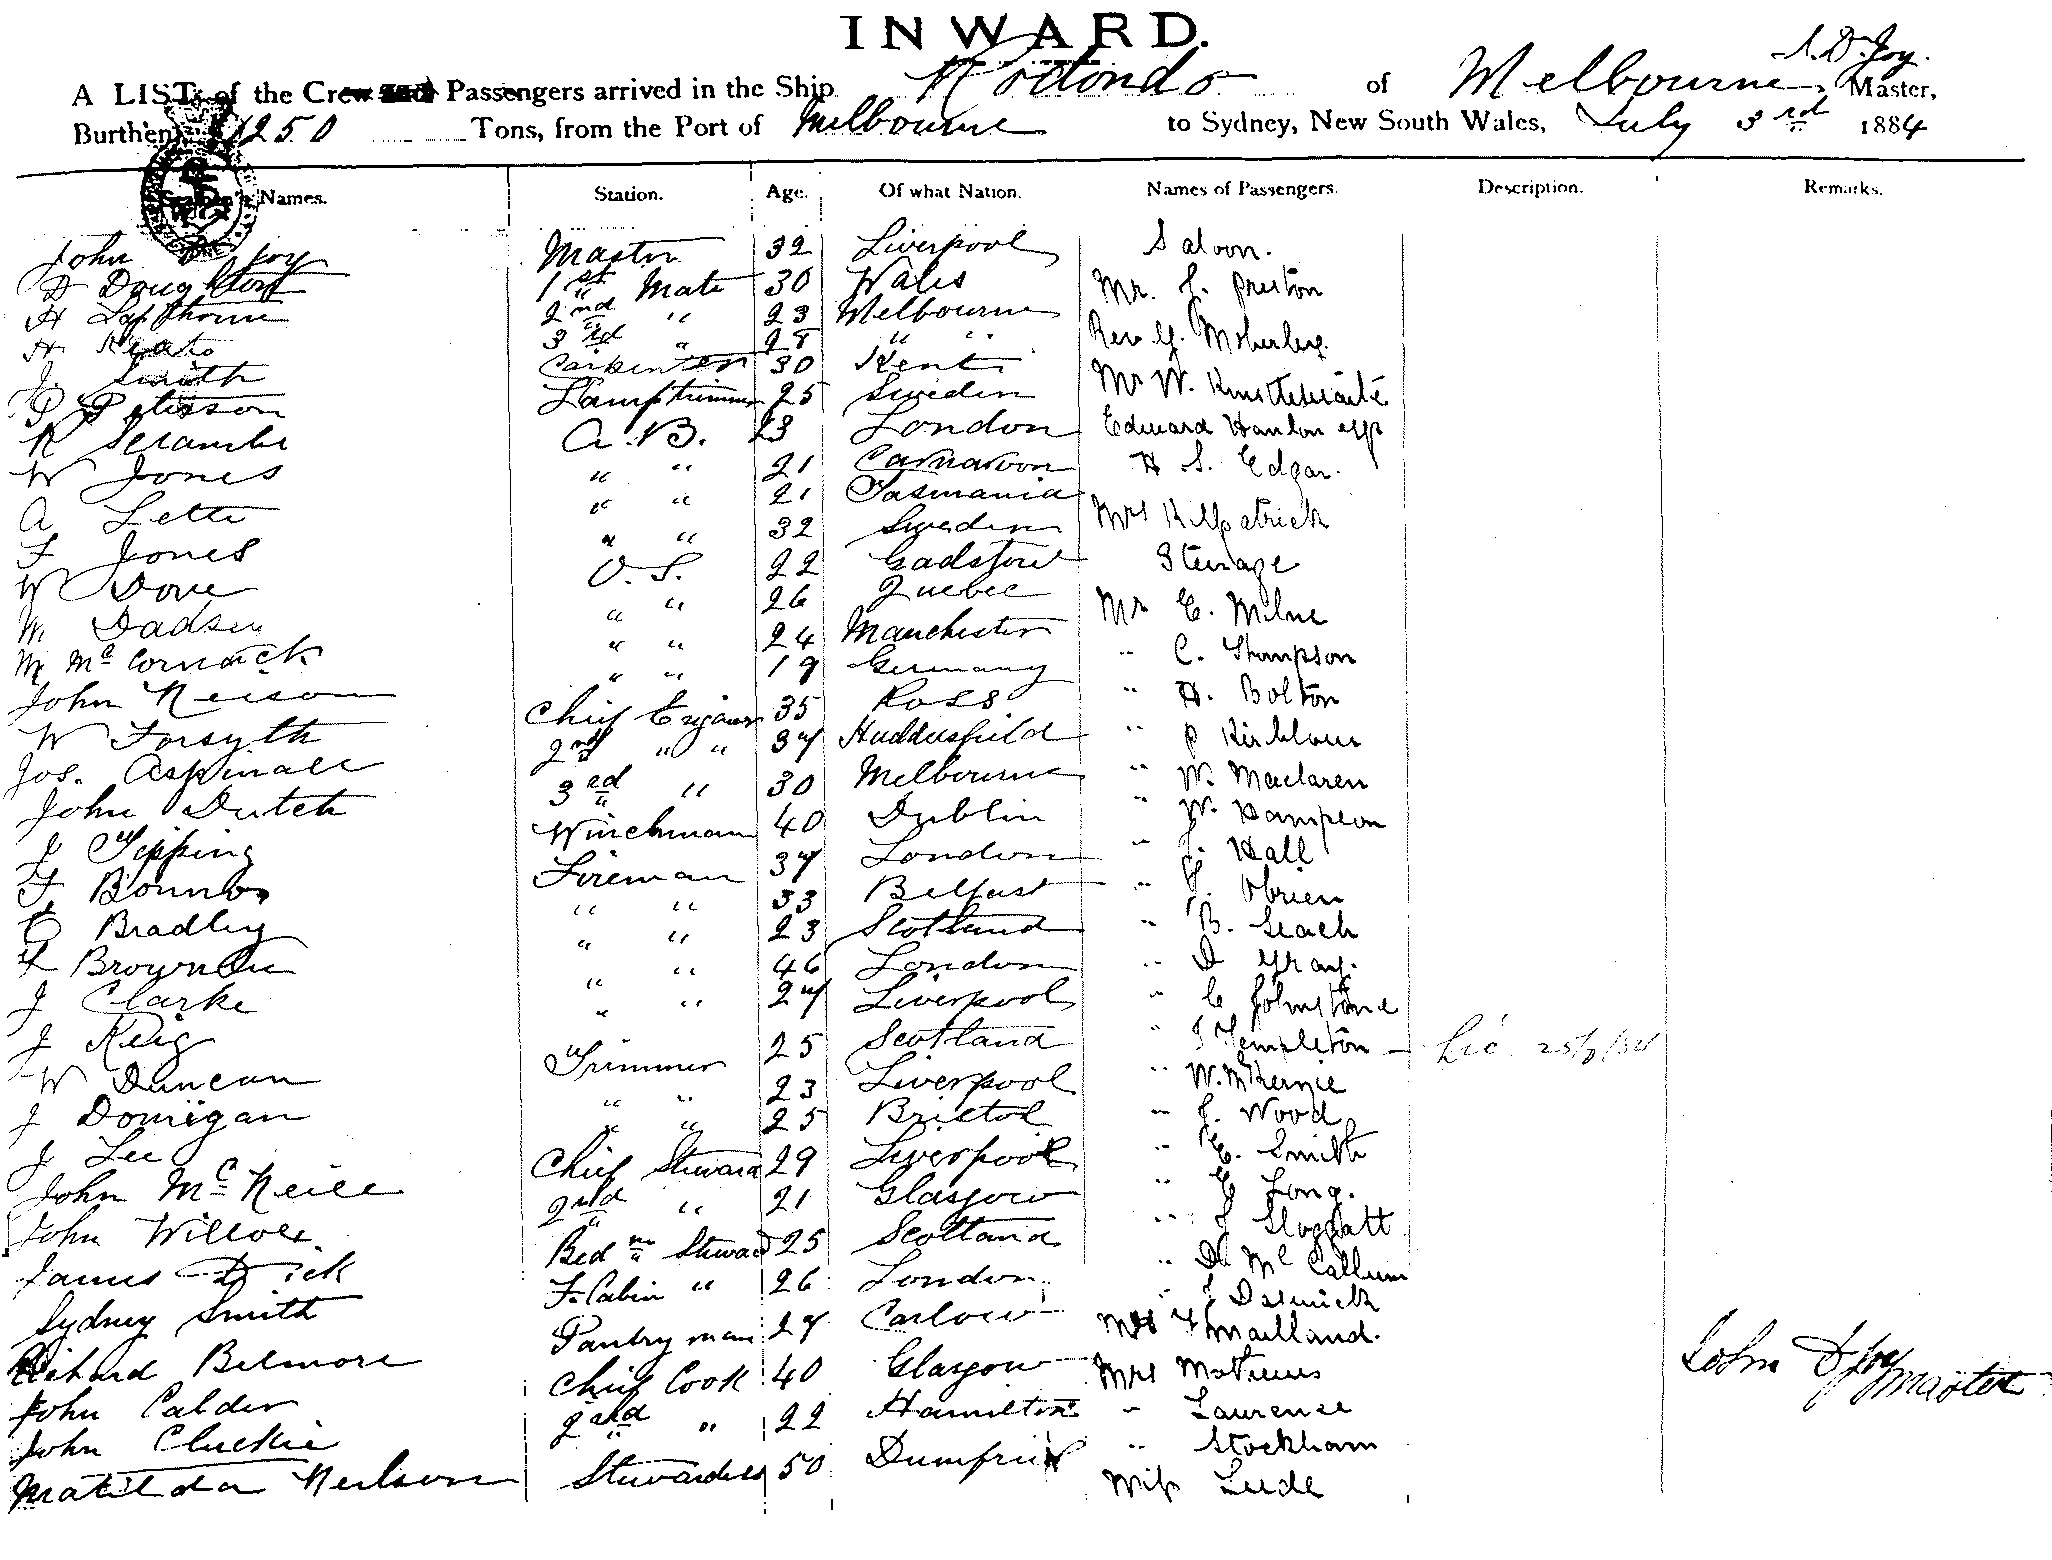 INWARD.
A LIST of the Crew and Passengers arrived in the Ship Rodondo of Melbourne, J. D. Joy. Master,
Burthen 1250 Tons, from the Port of Melbourne to Sydney, New South Wales, July 3rd 1884
Names. Station. Age. Of what Nation. Names of Passengers. Description. Remarks.
John D Joy Master 32 Liverpool Saloon.
D Doughton 1st Mate 30 Wales Mr. J. Preston
H Lapthorne 2nd " 23 Melbourne Rev. G. Moberley.
H Keats 3rd " 28 " " Mr W.
J. Smith Carpenter 30 Kent Edward Hanlon esq
P Petersson Lamptrimmer 25 Sweden H S. Edgar.
R Scrambe A.B. 23 London Mrs Kilpatrick
W Jones " " 21 Carnarvon Steerage
A Lette " " 21 Tasmania Mr E. Milne
F Jones " " 32 Sweden " C. Thompson
W Dove O.S. 22 Gadsford " H. Bolton
M. Dadsen " " 26 Quebec " P
M McCormack " " 24 Manchester " W. Maclaren
John Neison " " 19 Germany " W. Hampson
W Forsyth Chief Engineer 35 Ross " J. Hall
Jos. Aspinall 2nd " " 37 Huddersfield " J. Obrien
John Dutch 3rd " 30 Melbourne " B. Leach
J Tipping Winchman 40 Dublin " D Gray.
F Bonnb Fireman 37 London " C Johnstone
C Bradley " " 33 Belfast " J Templeton — Lic 25/7/84
F Brownlie " " 23 Scotland " W. McKenzie
J Clarke " " 46 London " J. Wood
J Reig " " 27 Liverpool " E. Smith
W Duncan Trimmer 25 Scotland " E Long.
J Donigan " " 23 Liverpool " J Sloggatt
J Lee " " 25 Bristol " D McCallum
John McNeill Chief Steward 29 Liverpool " J
John Willox 2nd " 21 Glasgow Mrs Mailland.
James Dick Bed rm Steward 25 Scotland Mrs Mathews
Sydney Smith F. Cabin " 26 London " Laurence
Richard Belmore Pantry man 27 Carlow " Stockham
John Calder Chief Cook 40 Glasgow Miss
John Cluckie 2nd " 22 Hamilton
Matilda Neilson Stewardess 50 Dumfries
John D Joy
Master